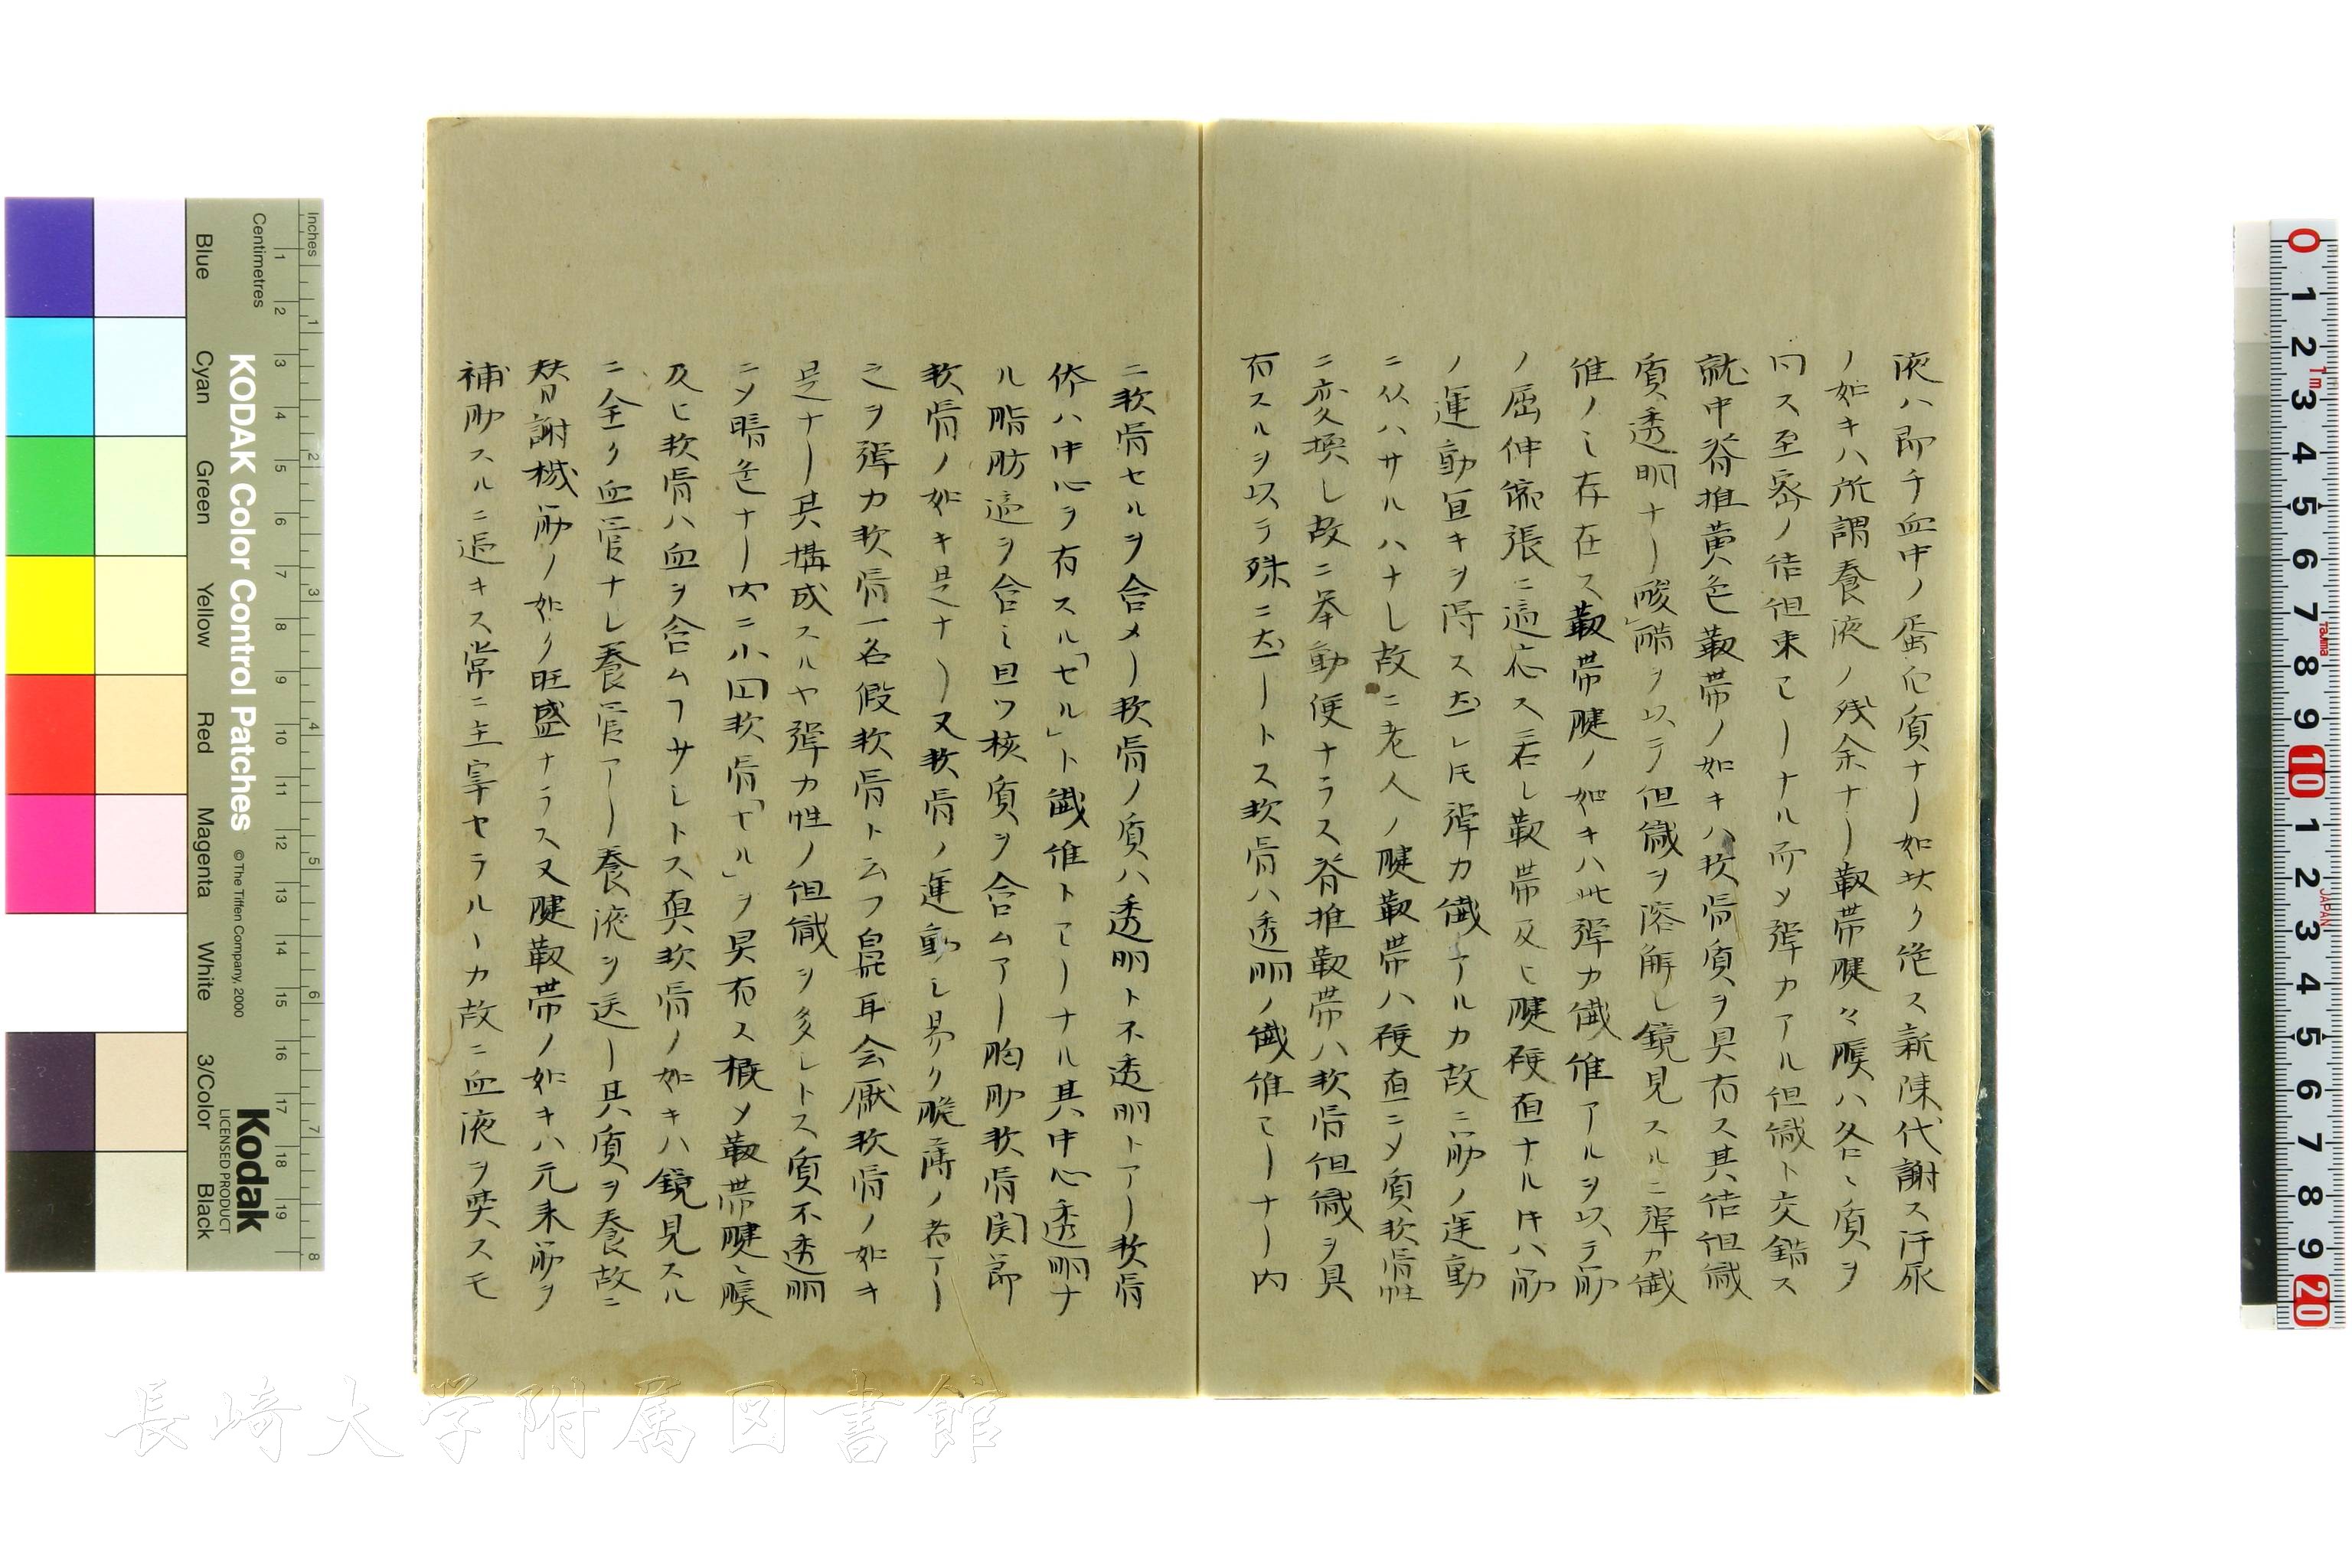 液ハ即チ血中ノ蛋白質ナー如此ク絶ス新陳代謝ス汗尿
ノ如キハ所謂養液ノ残余ナー靱帯腱々膜ハ各〻質ヲ
同ス至密ノ結組束ヨーナル而〆弾力アル組織ト交錯ス
就中脊推黄色靱帯ノ如キハ軟骨質ヲ具有ス其結組織
質透明ナー酸醋ヲ以テ組織ヲ溶解し鏡見スルニ弾力織
維ノミ存在ス靱帯腱ノ如キハ此弾力織維アルヲ以テ筋
ノ屈伸縮張ニ適応ス若し靱帯及ヒ腱硬直ナル片ハ筋
ノ運動宜キヲ得ス然レ𪜈弾力織アルカ故ニ筋ノ運動
ニ従ハサルハナし故ニ老人ノ腱靱帯ハ硬直ニ〆質軟骨性
ニ変換し故ニ挙動便ナラス脊推靱帯ハ軟骨組織ヲ具
有スルヲ以テ殊ニ然ートス軟骨ハ透明ノ織維ヨーナー内
ニ軟骨セルヲ含メー軟骨ノ質ハ透明ト不透明トアー軟骨
体ハ中心ヲ有スル「セル」ト織維トヨーナル其中心透明ナ
ル脂肪滴ヲ含ミ且ツ核質ヲ含ムアー胸肋軟骨関節
軟骨ノ如キ是ナー又軟骨ノ運動し易ク脆薄ノ者アー
之ヲ弾力軟骨一名假軟骨ト云フ鼻耳会厭軟骨ノ如キ
是ナー其構成スルヤ弾力性ノ組織ヲ多しトス質不透明
ニ〆暗色ナー内ニ小円軟骨「セル」ヲ具有ス概〆靱帯腱〻膜
及ヒ軟骨ハ血ヲ含ムヿサしトス真軟骨ノ如キハ鏡見スル
ニ全ク血管ナし養管アー養液ヲ送ー其質ヲ養故ニ
替謝機筋ノ如ク旺盛ナラス又腱靱帯ノ如キハ元来筋ヲ
補助スルニ過キス常ニ主宰セラルーカ故ニ血液ヲ要スモ
KODAK Color Control Patches
© The Tiffen Company, 2000
Kodak
LICENSED PRODUCT
Inches
Centimetres
Blue
Cyan
Green
Yellow
Red
Magenta
White
3/Color
Black
長崎大学附属図書館